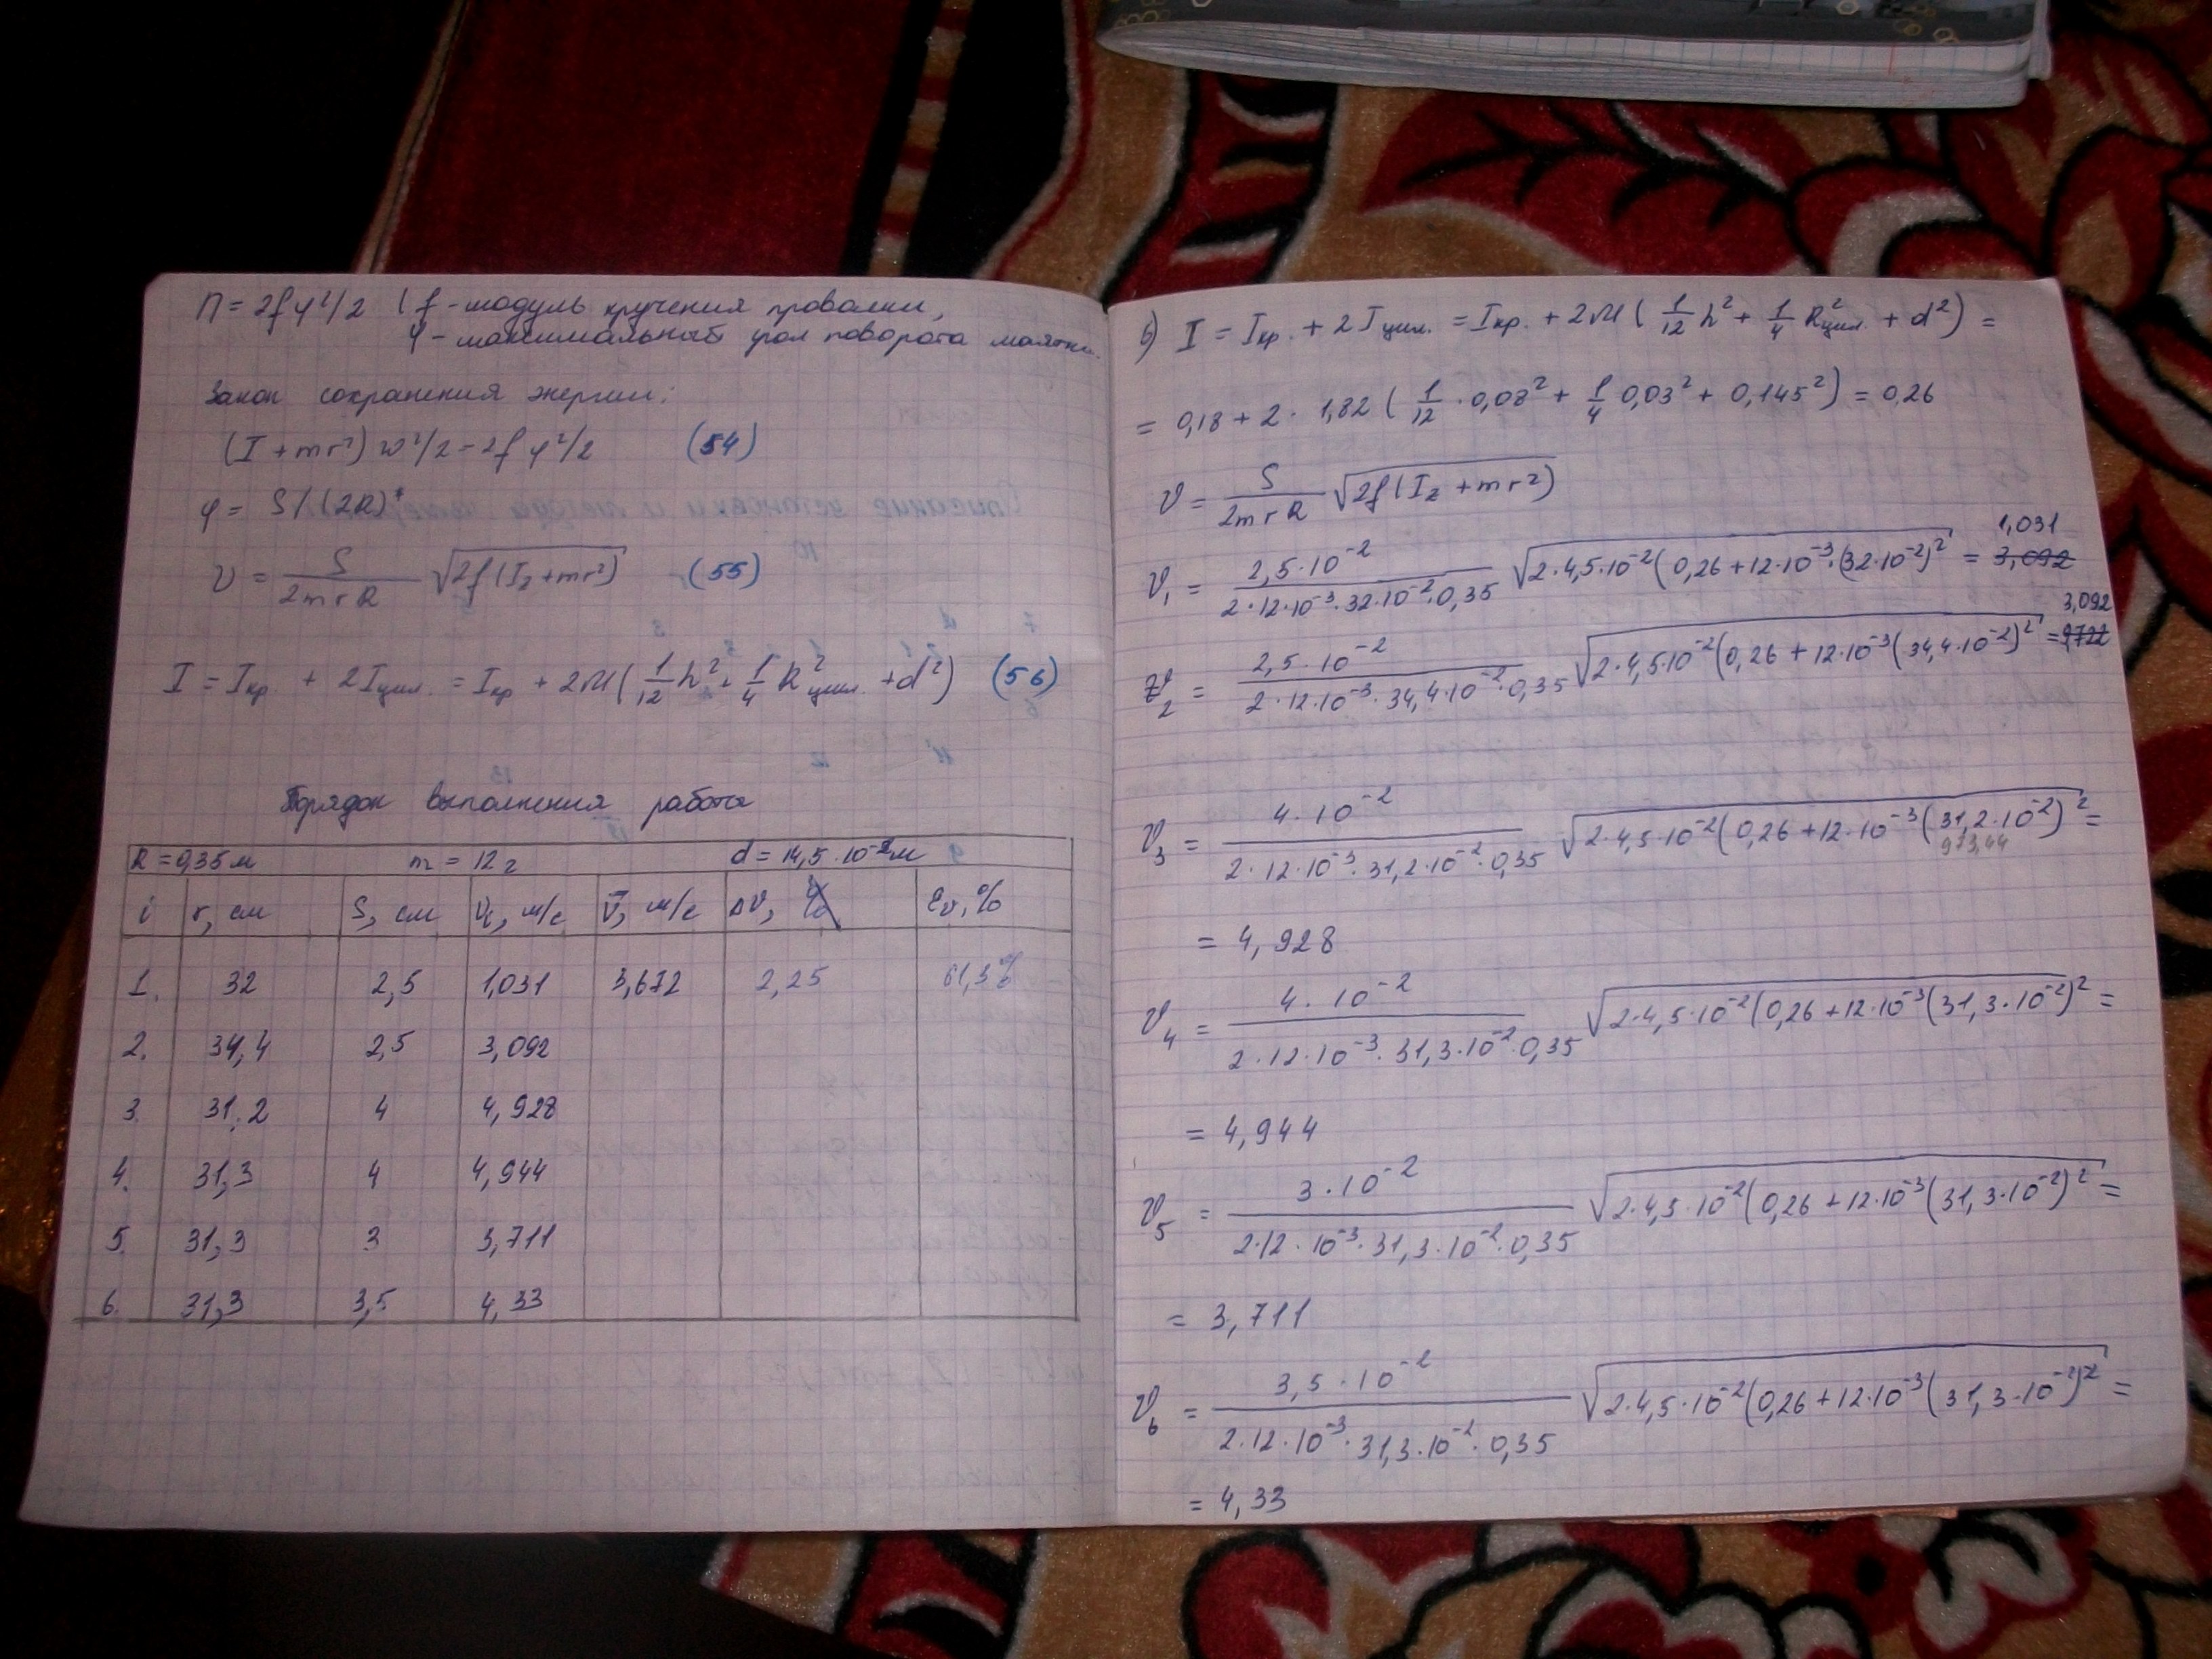 П = 2fφ²/2 (f - модуль кручения проволки,
φ - максимальный угол поворота маятни.
Закон сохранения энергии:
(I + mr²) w²/2 = 2fφ²/2 (54)
φ = S/(2R)
v = S/(2mrR) √(2f(I₂ + mr²)) (55)
I = Iкр + 2Iцил. = Iкр + 2M(1/12 h² + 1/4 R²цил. + d²) (56)
Порядок выполнения работы
R = 0,35 м m = 12 г d = 14,5·10⁻²м
i r, см S, см vᵢ, м/с v̄, м/с Δv, εv, %
1. 32 2,5 1,031 3,672 2,25 61,3%
2. 34,4 2,5 3,092
3. 31,2 4 4,928
4. 31,3 4 4,944
5. 31,3 3 3,711
6. 31,3 3,5 4,33
б) I = Iкр. + 2Iцил. = Iкр. + 2M(1/12 h² + 1/4 R²цил. + d²) =
= 0,18 + 2·1,82(1/12·0,08² + 1/4 0,03² + 0,145²) = 0,26
v = S/(2mrR) √(2f(I₂ + mr²))
v₁ = 2,5·10⁻²/(2·12·10⁻³·32·10⁻²·0,35) √(2·4,5·10⁻²(0,26+12·10⁻³·(32·10⁻²)²) = 3,092 1,031
v₂ = 2,5·10⁻²/(2·12·10⁻³·34,4·10⁻²·0,35) √(2·4,5·10⁻²(0,26+12·10⁻³(34,4·10⁻²)²) = 3,092
v₃ = 4·10⁻²/(2·12·10⁻³·31,2·10⁻²·0,35) √(2·4,5·10⁻²(0,26+12·10⁻³(31,2·10⁻²)²) =
973,44
= 4,928
v₄ = 4·10⁻²/(2·12·10⁻³·31,3·10⁻²·0,35) √(2·4,5·10⁻²(0,26+12·10⁻³(31,3·10⁻²)²) =
= 4,944
v₅ = 3·10⁻²/(2·12·10⁻³·31,3·10⁻²·0,35) √(2·4,5·10⁻²(0,26+12·10⁻³(31,3·10⁻²)²) =
= 3,711
v₆ = 3,5·10⁻²/(2·12·10⁻³·31,3·10⁻²·0,35) √(2·4,5·10⁻²(0,26+12·10⁻³(31,3·10⁻²)²) =
= 4,33